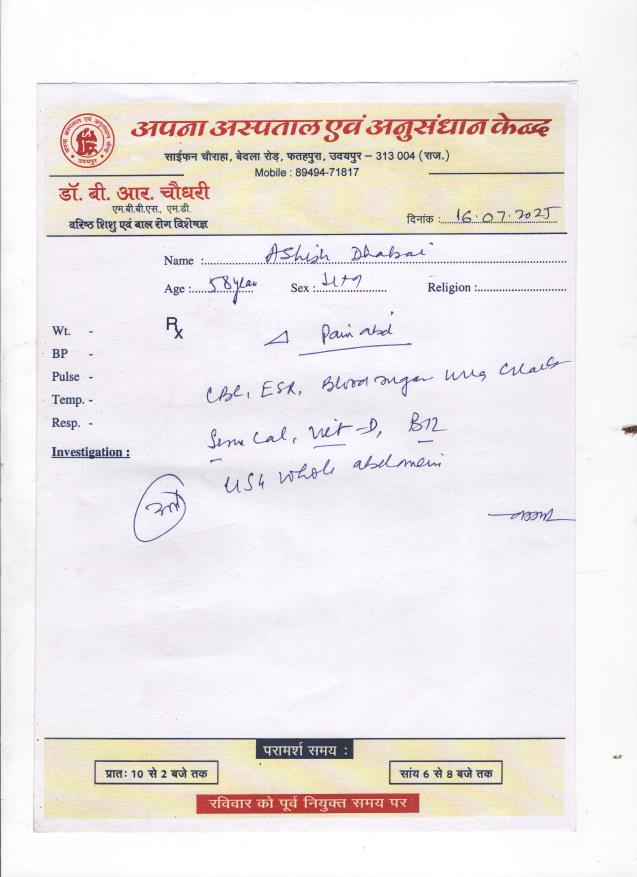 अपना अस्पताल एवं अनुसंधान केन्द्र
साईफन चौराहा, बेदला रोड़, फतहपुरा, उदयपुर – 313 004 (राज.)
Mobile : 89494-71817
डॉ. बी. आर. चौधरी
एम.बी.बी.एस., एम.डी.
वरिष्ठ शिशु एवं बाल रोग विशेषज्ञ
दिनांक : 16.07.2025
Name : Ashish Dhabai
Age : 58 year Sex : Religion :
Rx
Wt. - Pain abd
BP -
Pulse -
Temp. - CBC, ESR, Blood sugar
Resp. - Cal, Vit-D, B12
Investigation :
USG whole abdomen
परामर्श समय :
प्रातः 10 से 2 बजे तक सांय 6 से 8 बजे तक
रविवार को पूर्व नियुक्त समय पर